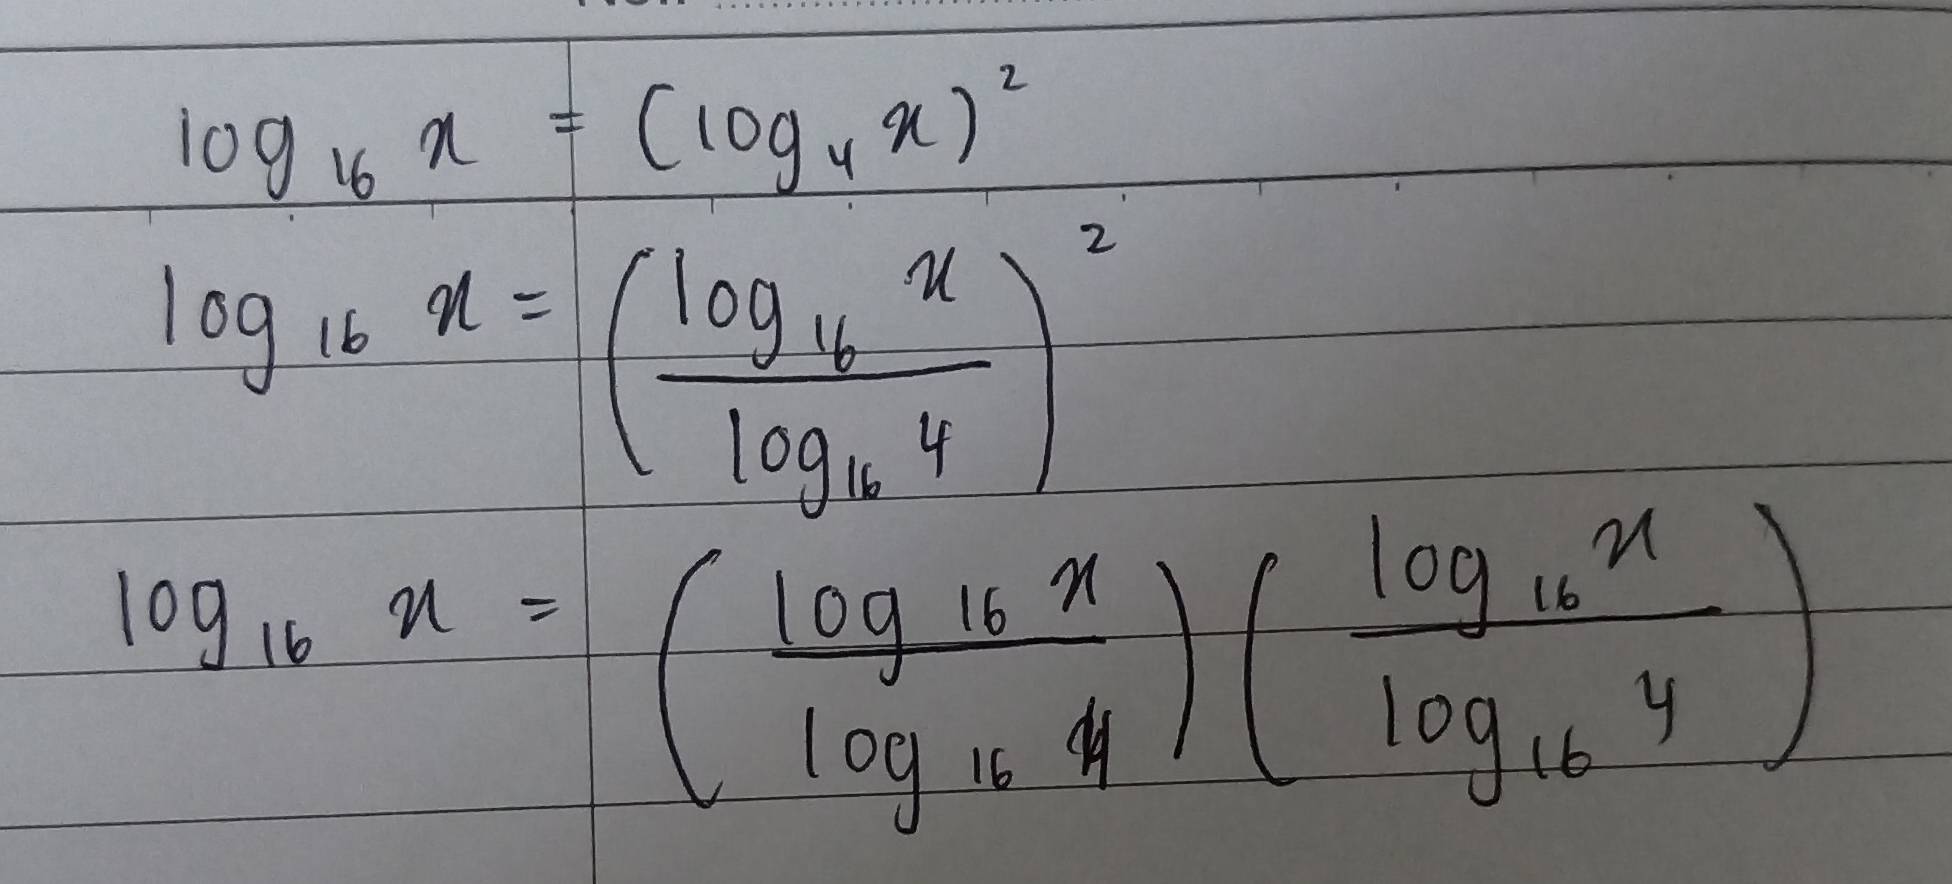 log₁₆ x = (log₄ x)²
log₁₆ x = (log₁₆ x / log₁₆ 4)²
log₁₆ x = (log₁₆ x / log₁₆ 4) (log₁₆ x / log₁₆ 4)